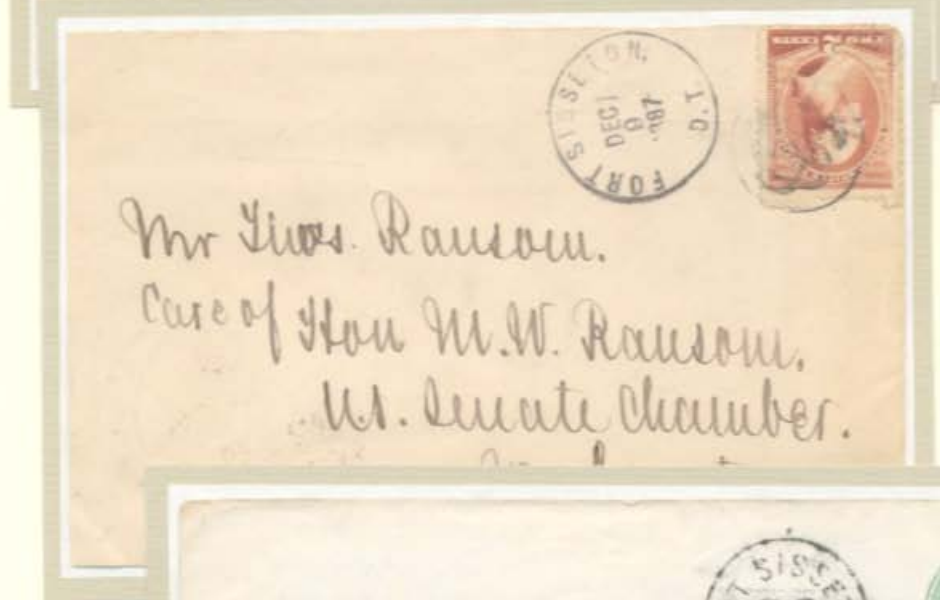 FORT SISSETON, D.T.
DEC 1
9
1887
Mr Thos. Ransom.
Care of Hon M.W. Ransom.
U.S. Senate Chamber.
T SISSE